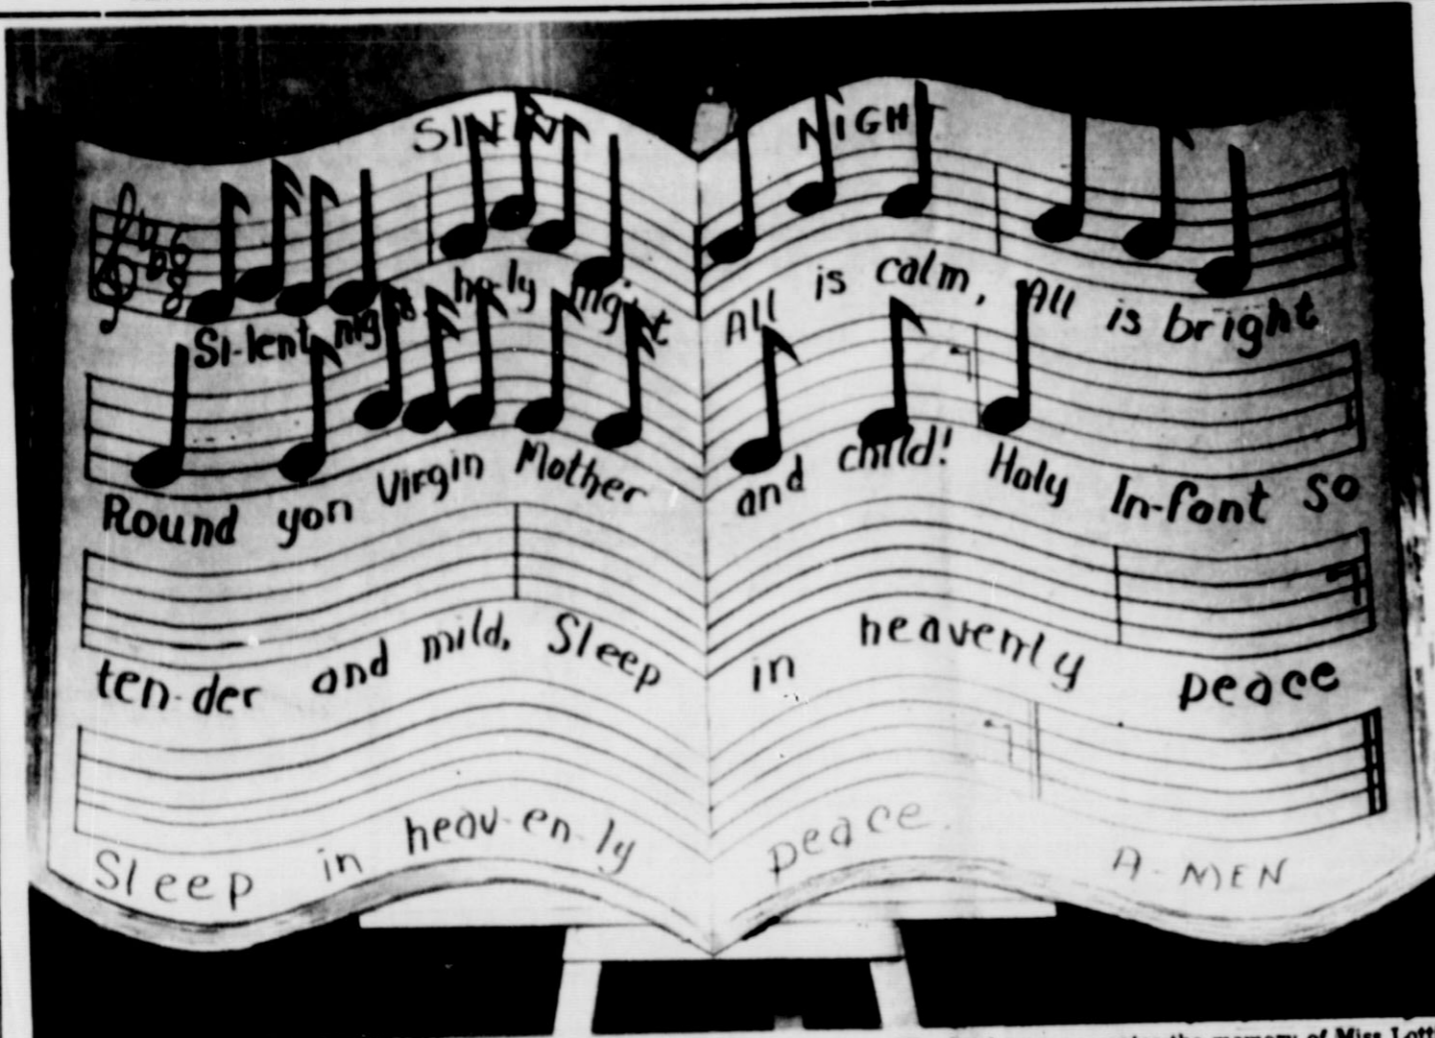 SILENT NIGHT
6
8
Si-lent night, ho-ly night All is calm, All is bright
Round yon Virgin Mother and child! Holy In-fant so
ten-der and mild, Sleep in heavenly peace
Sleep in heav-en-ly peace. A-MEN
the memory of Miss Lott